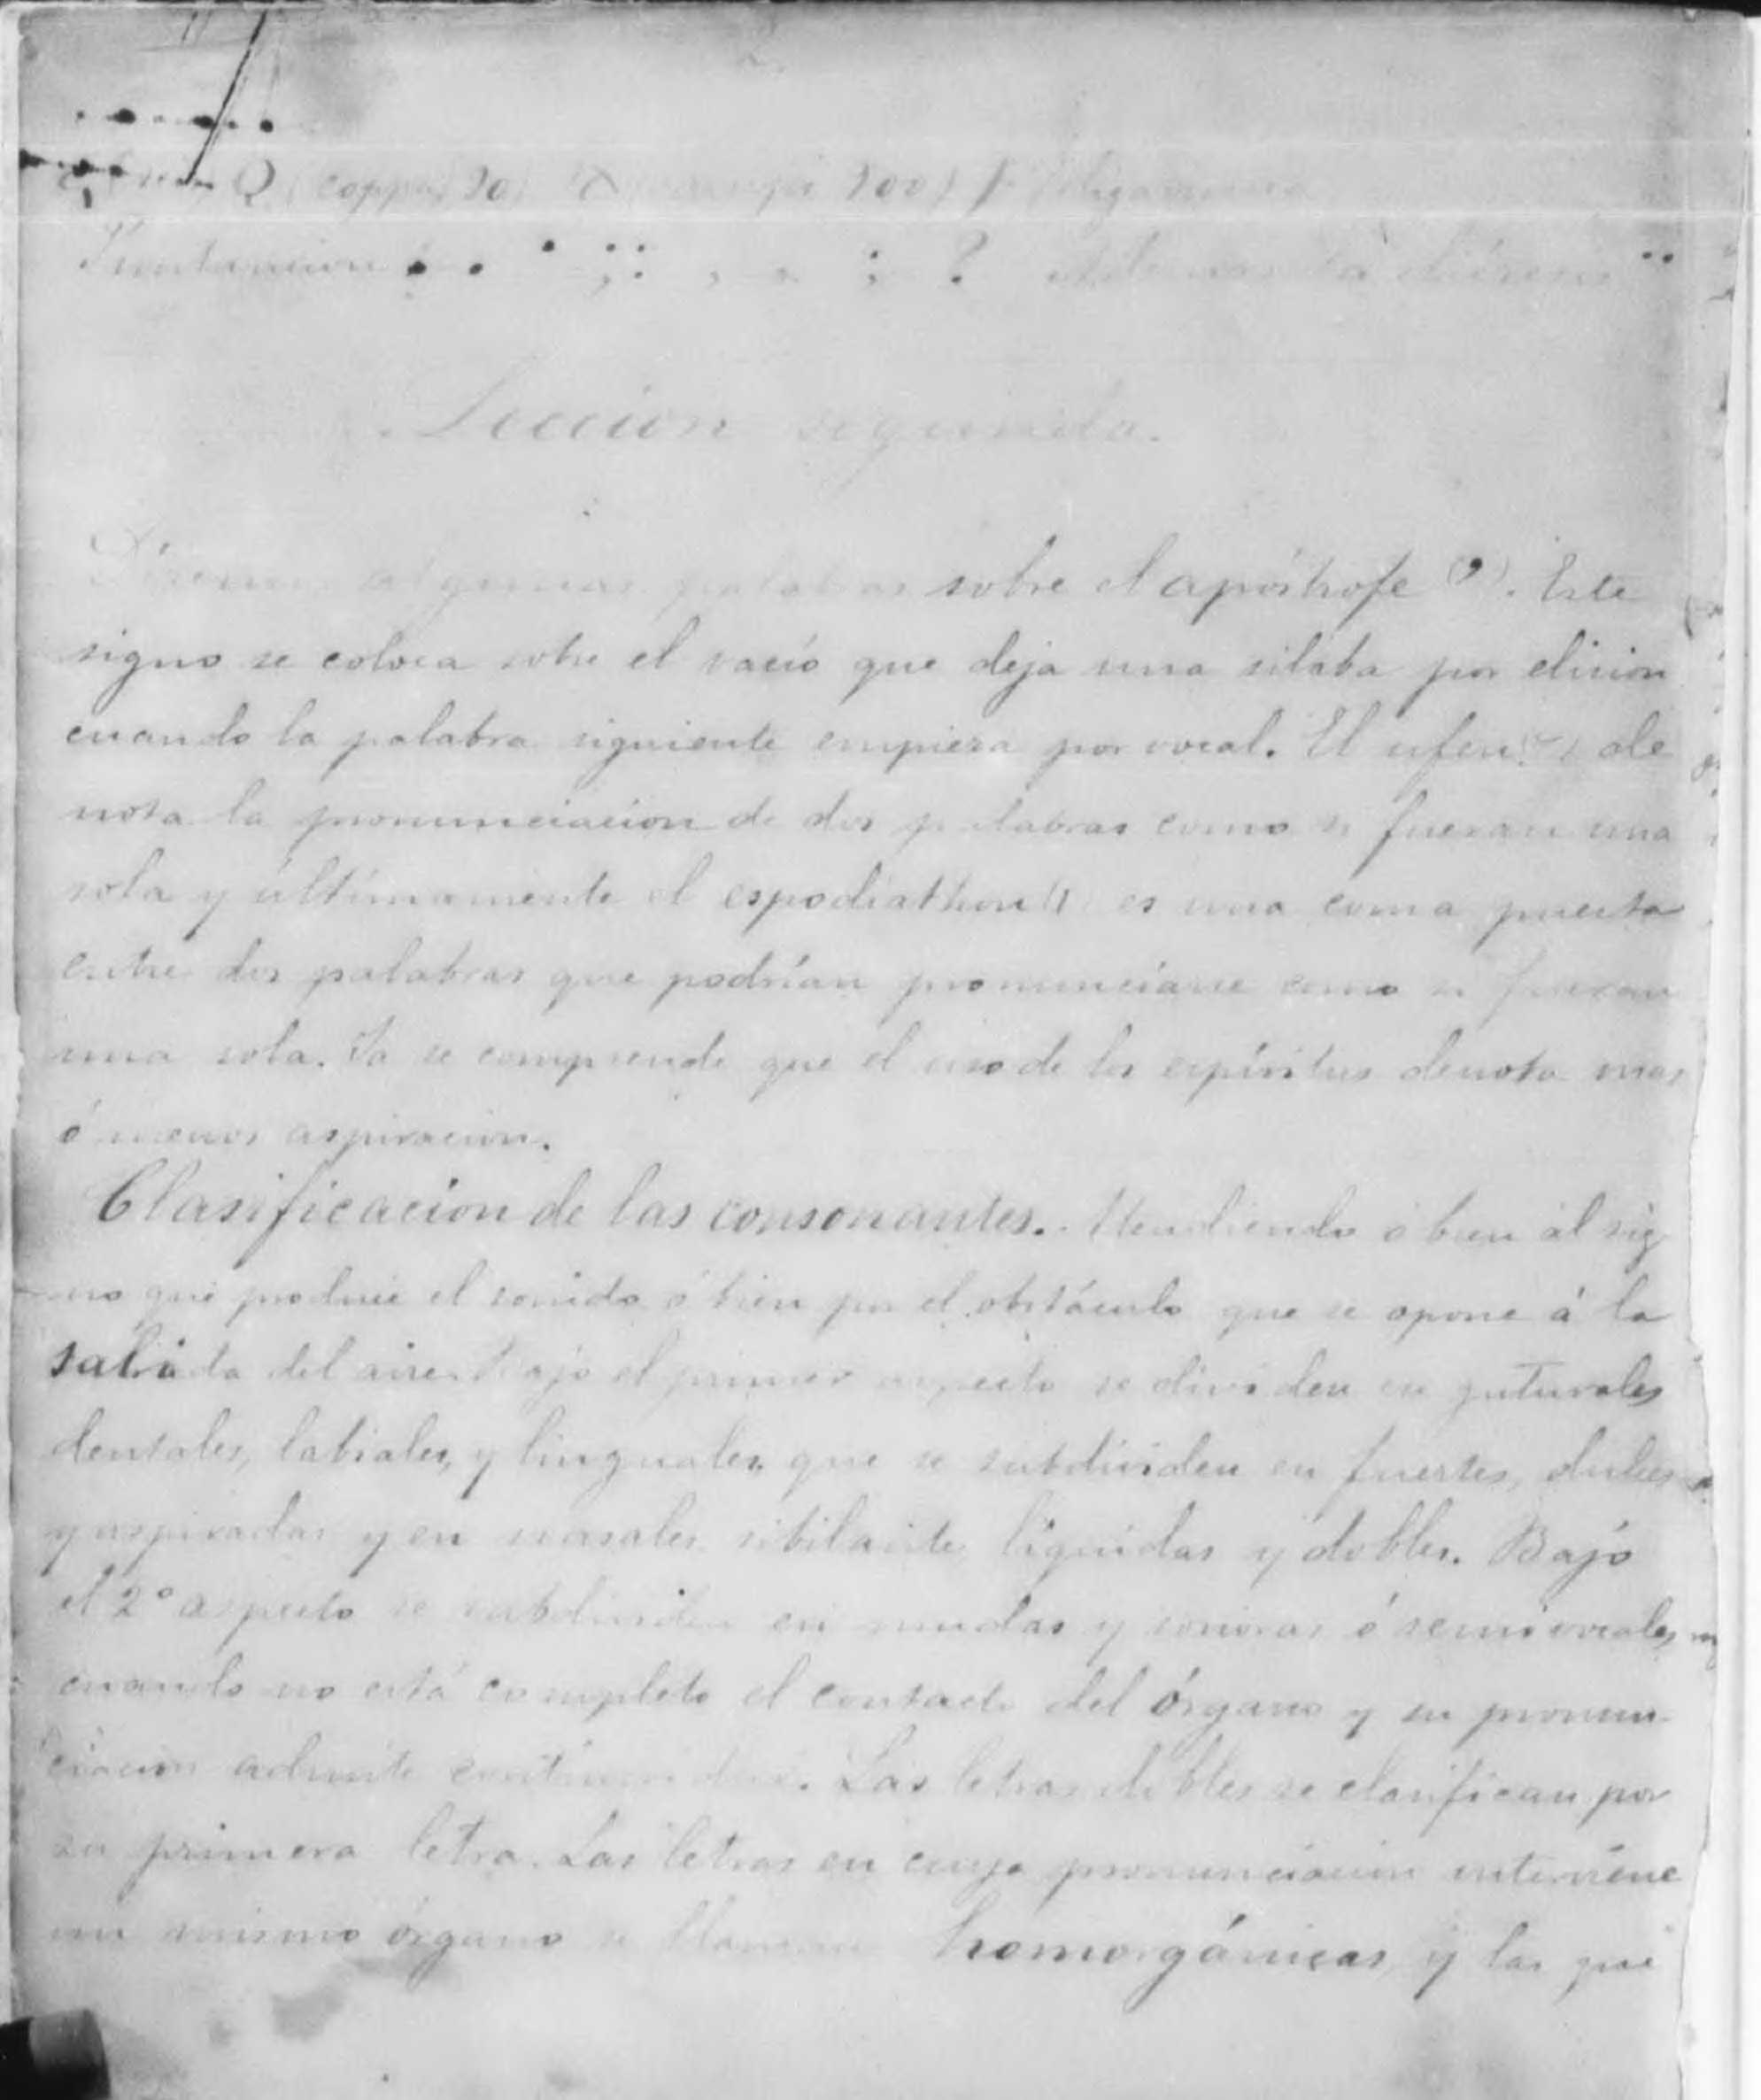 Q (coppa) 90
Puntuacion . . · ; : , , ; ? Ademas la diéresis ¨
Leccion segunda.
Diremos algunas palabras sobre el apóstrofe (’). Este
signo se coloca sobre el vacío que deja una silaba por elision
cuando la palabra siguiente empieza por vocal. El ufen (‿) de
nota la pronunciacion de dos palabras como si fueran una
sola y últimamente el espodiathon (,) es una coma puesta
entre dos palabras que podrían pronunciarse como si fueran
una sola. Ya se comprende que el uso de los espíritus denota mas
ó menos aspiracion.
Clasificacion de las consonantes. Atendiendo ó bien al sig
no que produce el sonido ó bien por el obstáculo que se opone á la
salida del aire. Bajo el primer aspecto se dividen en guturales
dentales, labiales, y linguales, que se subdividen en fuertes, dulces
y aspiradas y en nasales sibilante liquidas y dobles. Bajo
el 2° aspecto se subdividen en mudas y sonoras ó semivocales
cuando no está completo el contacto del órgano y su pronun-
ciacion admite continuidad. Las letras dobles se clasifican por
su primera letra. Las letras en cuya pronunciacion interviene
un mismo órgano se llaman homorgánicas y las que